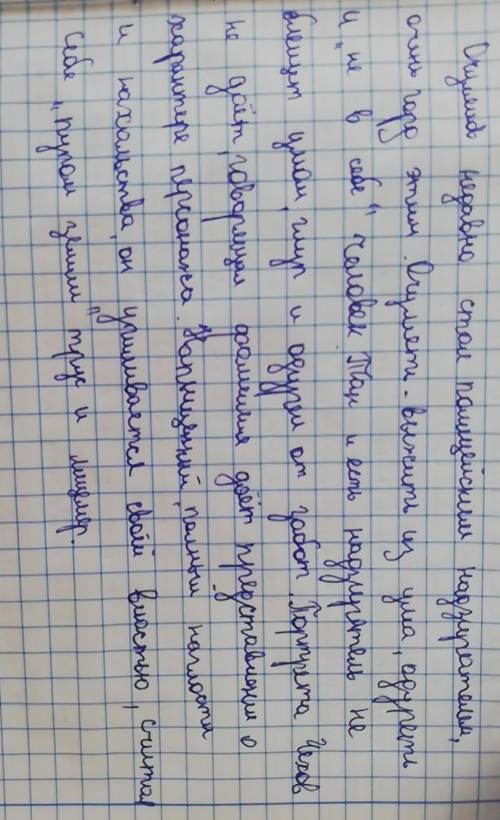 Очумелов недавно стал полицейским надзирателем,
очень горд этим. Очуметь - выжить из ума, одуреть
и "не в себе" человек. Так и есть надзиратель не
блещет умом, глуп и одурел от забот. Портрета Чехов
не даёт, говорящая фамилия даёт представление о
характере персонажа. Напыщенный, полный наглости
и нахальства, он упивается своей властью, считая
себя "пупом земли" трус и лицемер.